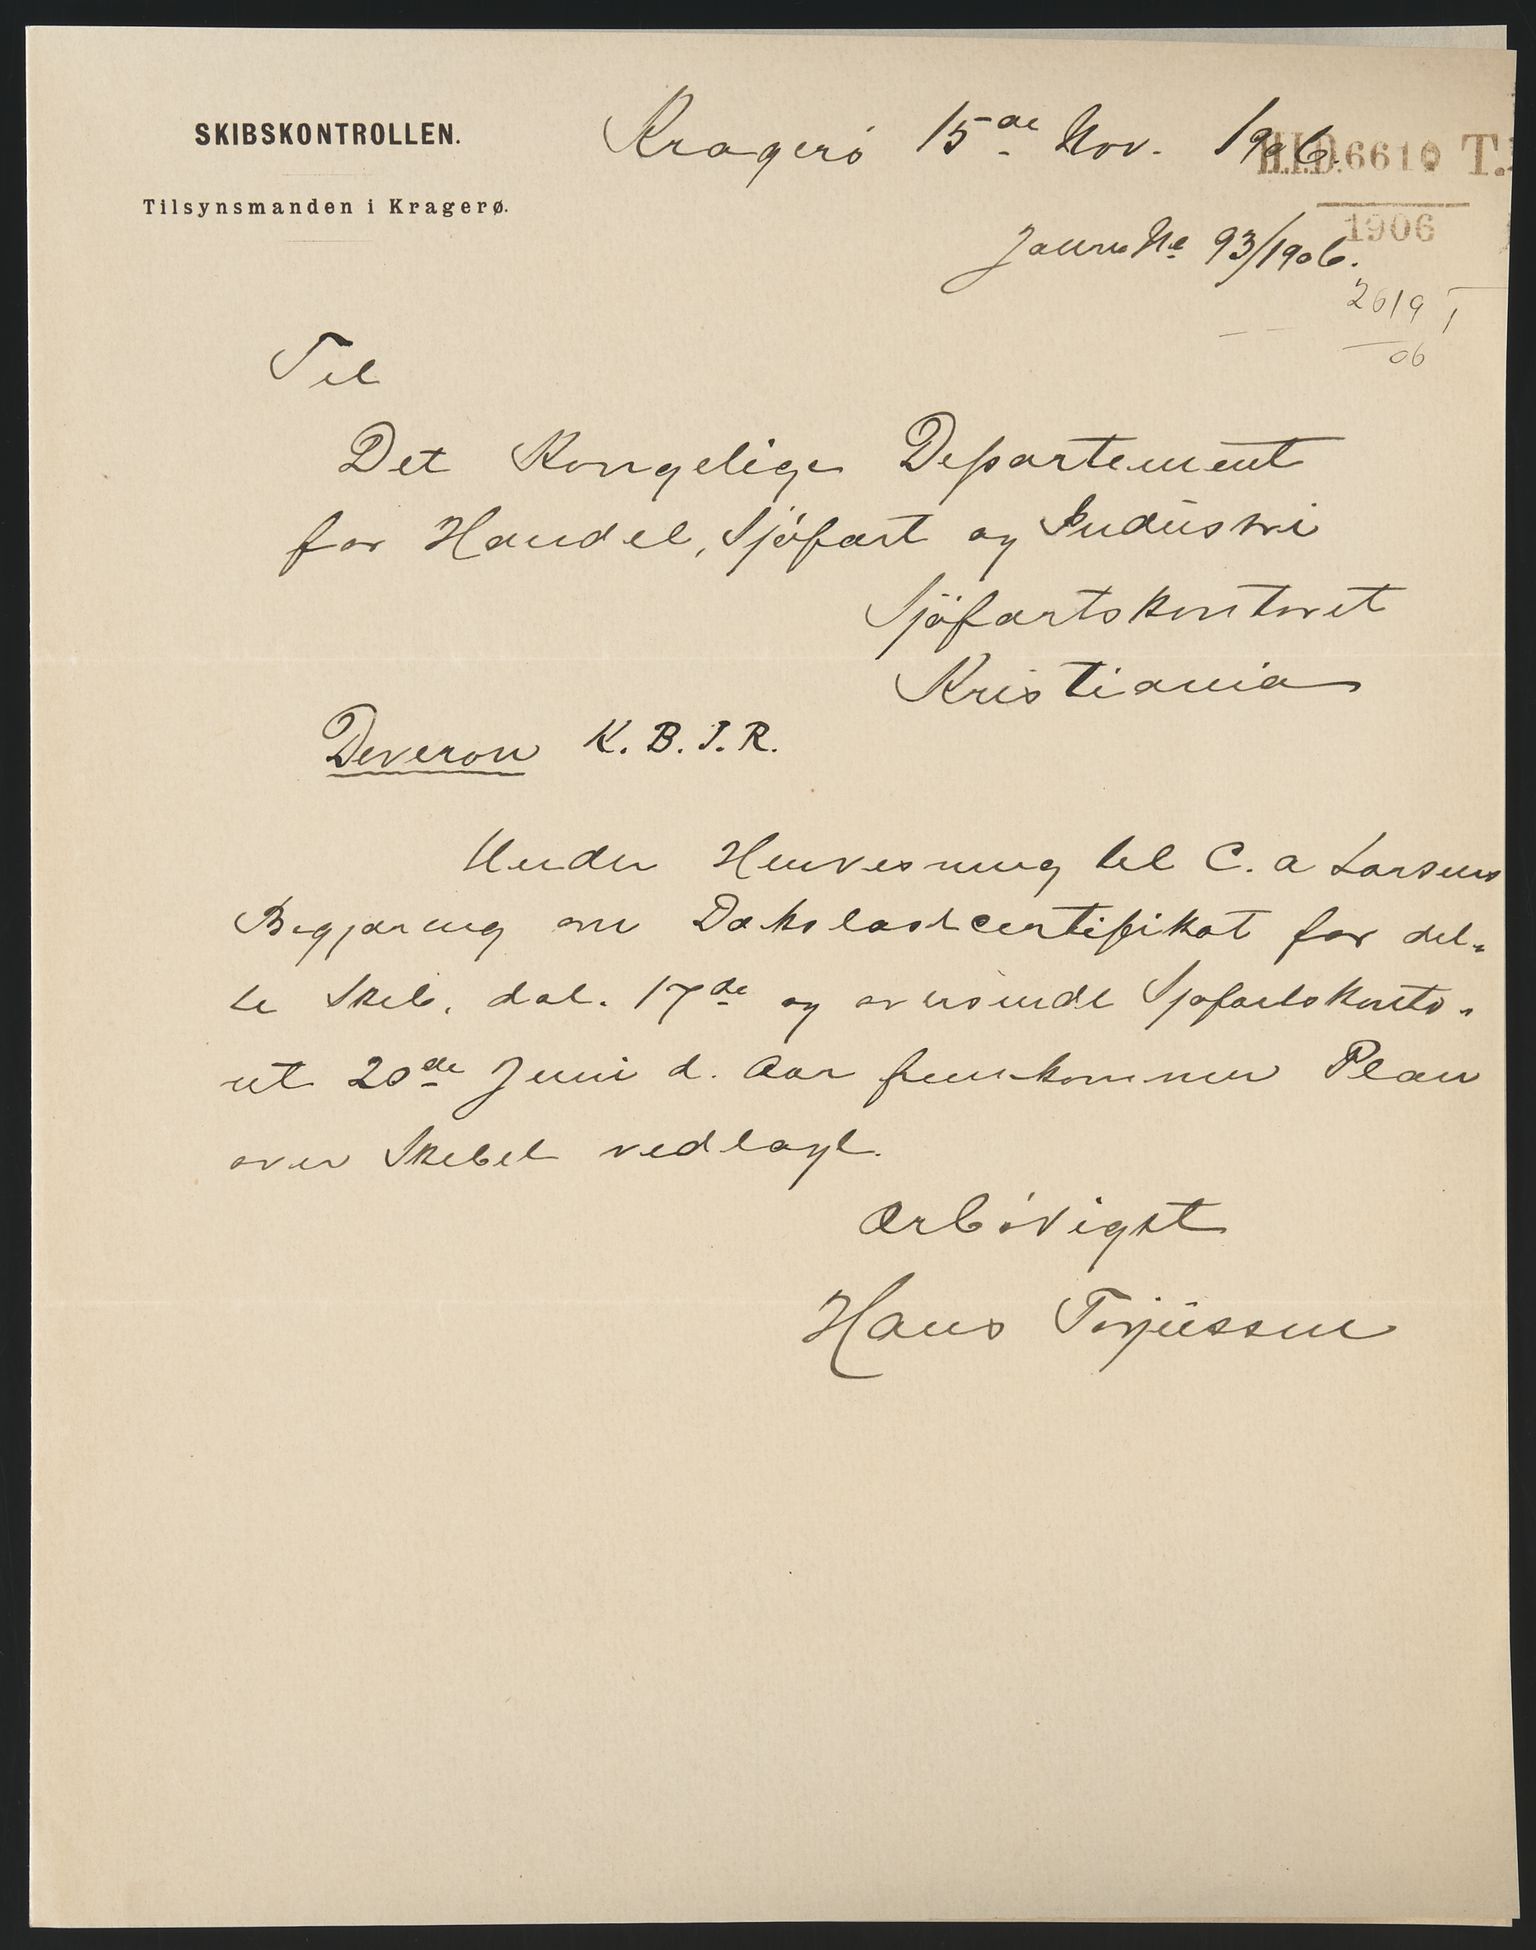 SKIBSKONTROLLEN.
Tilsynsmanden i Kragerø.
Kragerö 15de Nov. 1906.
H.I.D. 6610 T.
1906
Journ No 93/1906.
2619 I
06
Til
Det Kongelige Departement
for Handel, Sjöfart og Industri
Sjöfartskontoret
Kristiania
Deveron K. B. J. R.
Under Henvisning til C. A Larsens
Begjæring om Dækslastcertifikat for det-
te Skib, dat. 17de og oversendt Sjøfartskonto-
ret 20de Juni d. Aar fremkommer Plan
over Skibet vedlagt.
Ærbödigst
Hans Torjüssen